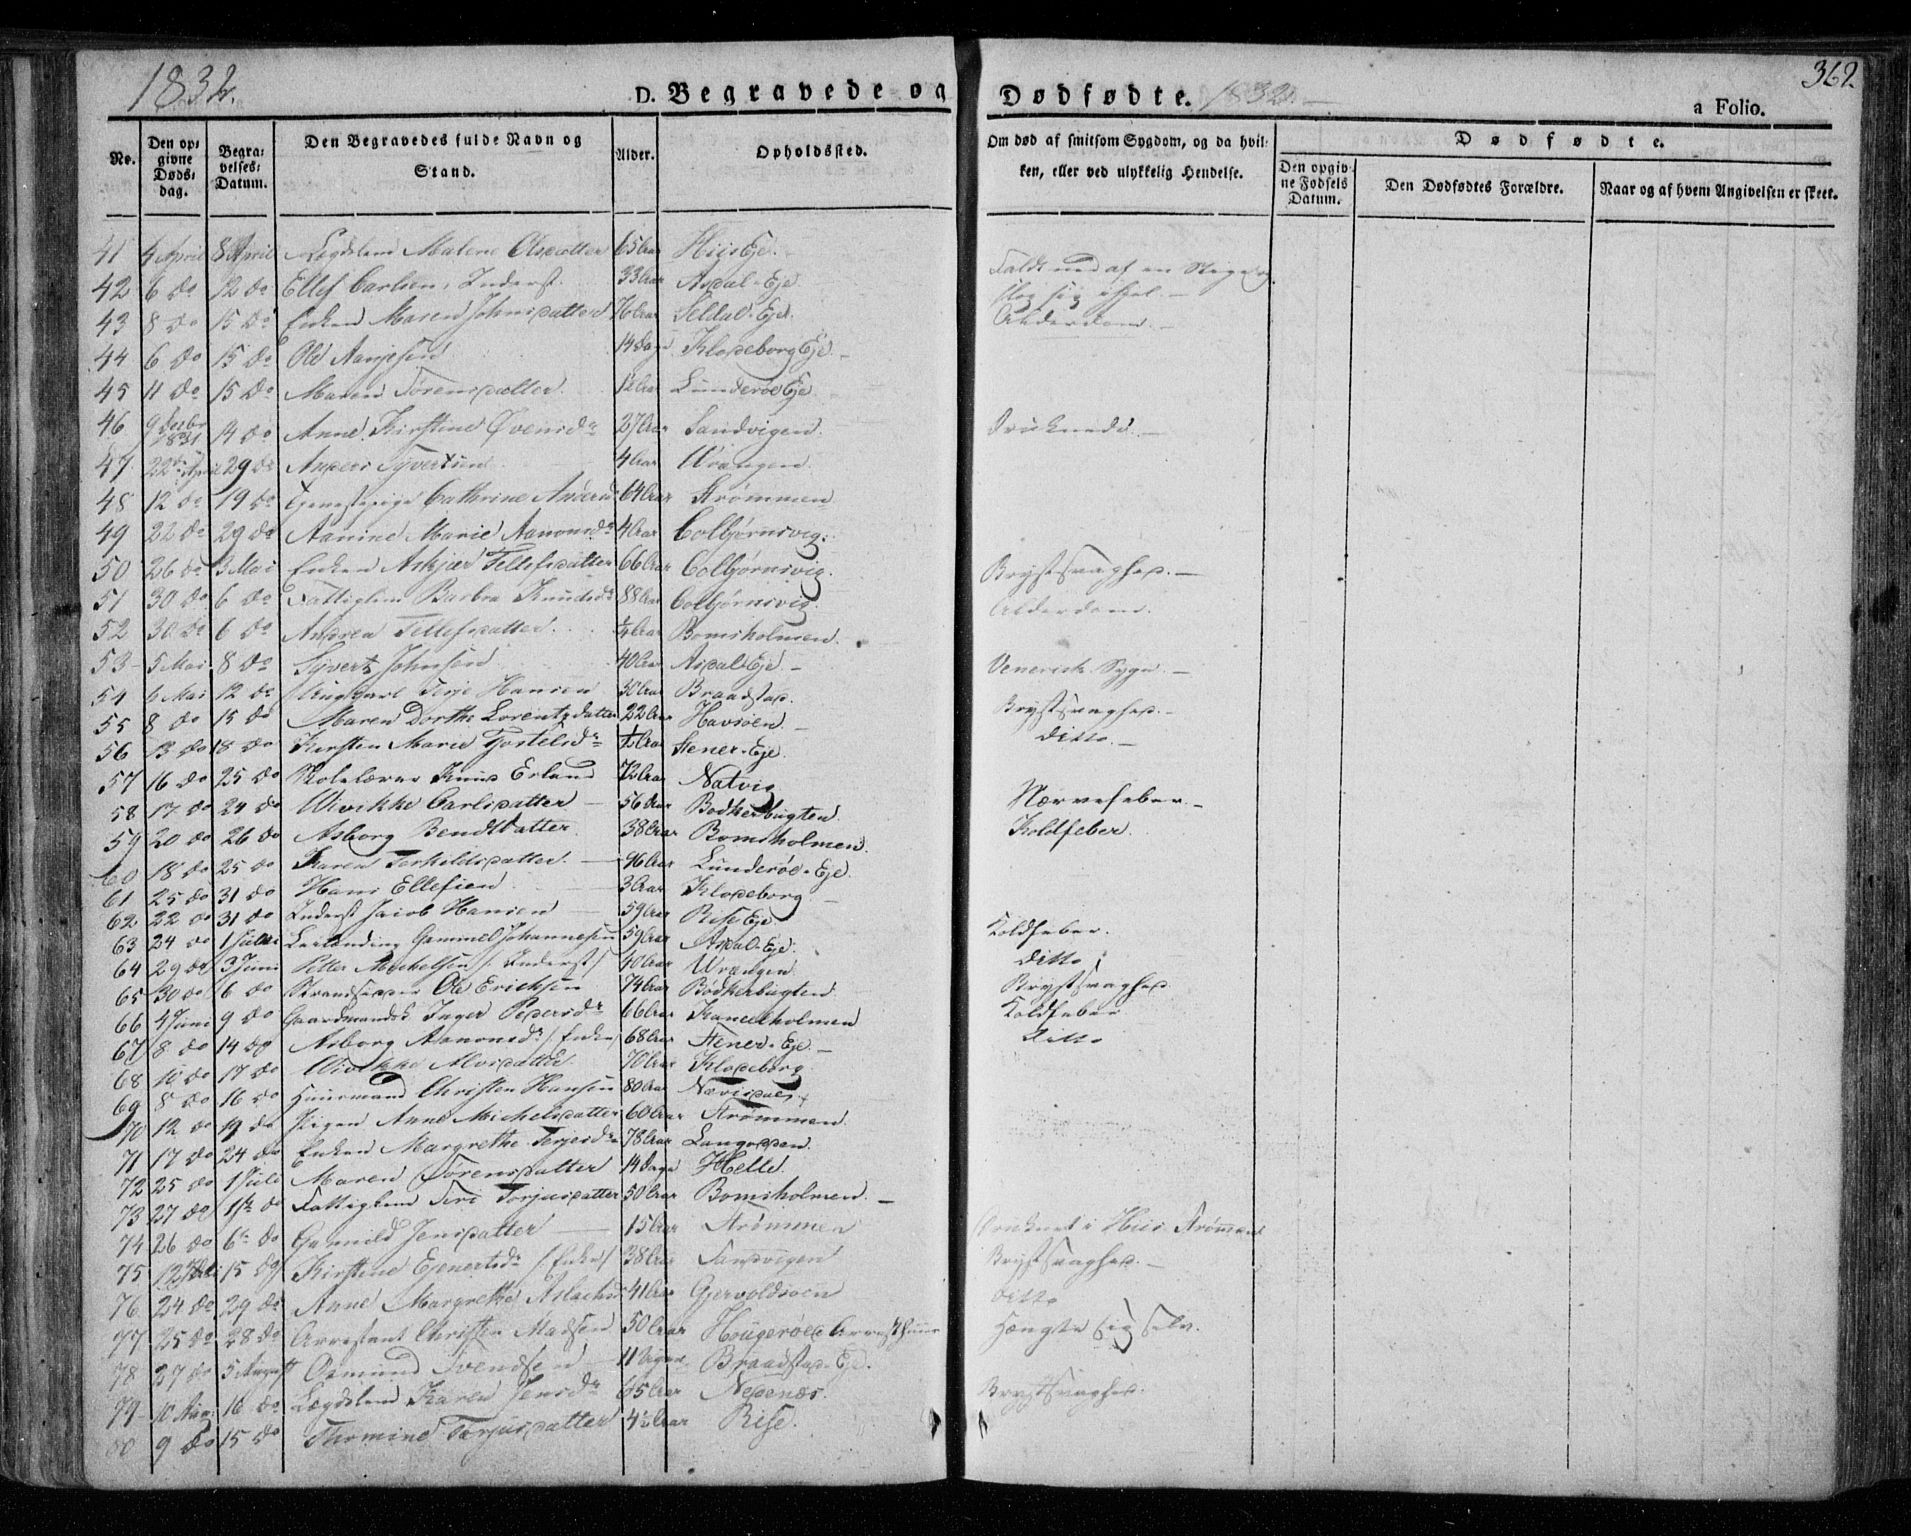 1832.
D. Begravede og Dødfødte. 1832. 362.
a Folio.
No. Den opgivne Dødsdag. Begravelses-Datum. Den Begravedes fulde Navn og Stand. Alder. Opholdssted. Om død af smitsom Sygdom, og da hvilken, eller ved ulykkelig Hendelse. Dødfødte. Den opgivne Fødsels Datum. Den Dødfødtes Forældre. Naar og af hvem Angivelsen er skeet.
41 4 April 8 April Lægdslem Malene Olsdatter 65 Aar Hiis Eje.
42 6 do 12 do Ellef Carlsen, Inderst. 33 Aar Asdal-Eje Faldt ned af en Stige og slog sig ihjel.
43 8 do 15 do Enken Maren Johnsdatter 76 Aar Seldal-Eje. Alderdom.
44 6 do 15 do Ole Aanjesen 14 Dage Klodeborg Eje.
45 11 do 15 do Maren Sørensdatter. 12 Aar Lunderøe Eje
46 9 Decbr 1831 14 do Anne Kirstine Svensdr 27 Aar Sandvigen. Druknede.
47 22de April 29 do Anders Syvertsen 4 Aar Vrangen.
48 12 do 19 do Tjenestepige Cathrine Andersd 64 Aar Strømmen
49 22 do 29 do Aanine Marie Aanonsdr 4 Aar Colbjørnsvig.
50 26 do 3 Mai Enken Askjer Tellefsdatter 66 Aar Colbjørnsvig. Brystsvaghed.
51 30 do 6 do Fattiglem Barbra Knudsdr 88 Aar Colbjørnsvig. Alderdom.
52 30 do 6 do Andrea Tellefsdatter. 1/4 Aar Bomsholmen.
53 5 Mai 8 do Syvert Johnsen 40 Aar Asdal-Eje Venerisk Syge.
54 6 Mai 12 do Ungkarl Terje Hansen 30 Aar Braadstad. Brystsvaghed.
55 8 do 15 do Maren Dorthe Lorentzdatter 22 Aar Havsøen. ditto.
56 13 do 18 do Kirsten Marie Gostelsdr Aar Stener-Eje.
57 16 do 25 do Skolelærer Knud Erland 72 Aar Natvig
58 17 do 24 do Wivikke Carlsdatter 56 Aar Bødkerbugten. Nervefeber.
59 20 do 26 do Asborg Bendtsdatter. 38 Aar Bomsholmen. Koldfeber.
60 18 do 25 do Karen Terkildsdatter. 96 Aar Lunderøe-Eje.
61 25 do 31 do Hans Ellefsen 3 Aar Klodeborg
62 22 do 31 do Inderst Jacob Hansen 59 Aar Rise Eje Koldfeber.
63 24 do 1 Juni Gammel Johannesen 59 Aar Asdal-Eje. ditto
64 29 do 3 Juni Petter Michelsen /Inderst/ 40 Aar Wrangen Brystsvaghed
65 30 do 6 do Strandsidder Ole Ericksen 74 Aar Bødkerbugten Koldfeber
66 4 Juni 9 do Gaardmandsk Inger Pedersdr 66 Aar Kancelholmen Ditto
67 8 do 14 do Asborg Aanonsdr /Enke/ 68 Aar Stener-Eje.
68 10 do 17 do Wivikke Alvsdatter 70 Aar Klodeborg.
69 8 do 16 do Huusmand Christen Hansen 80 Aar Nævisdal.
70 12 do 19 do Pigen Anne Michelsdatter 60 Aar Strømmen
71 17 do 24 do Enken Margrethe Terjesdr 78 Aar Langodden
72 25 do 1 Juli Maren Sørensdatter 14 Dage Helle.
73 27 do 1ste do Fattiglem Siri Torjusdatter 50 Aar Bomsholmen.
74 26 do 6te do Gunnild Jensdatter 15 Aar Strømmen Druknet i Hiis Strømmen
75 12 Juli 15 do Kirstine Ejnertsdr /Enke/ 38 Aar Sandvigen Brystsvaghed.
76 24 do 29 do Anne Margrethe Aslachsd 41 Aar Gjervoldsøen ditto
77 25 do 28 do Arrestant Christen Madsen 50 Aar Hougerøed Arresthuus Hængte sig selv.
78 27 do 5 August Osmund Svendsen 11 Uger Braadstad-Eje.
79 10 Aug. 16 do Lægdslem Karen Jensdr 65 Aar Nedenæs. Brystsvaghed.
80 9 do 15 do Thomine Torjusdatter 4½ Aar Rise.